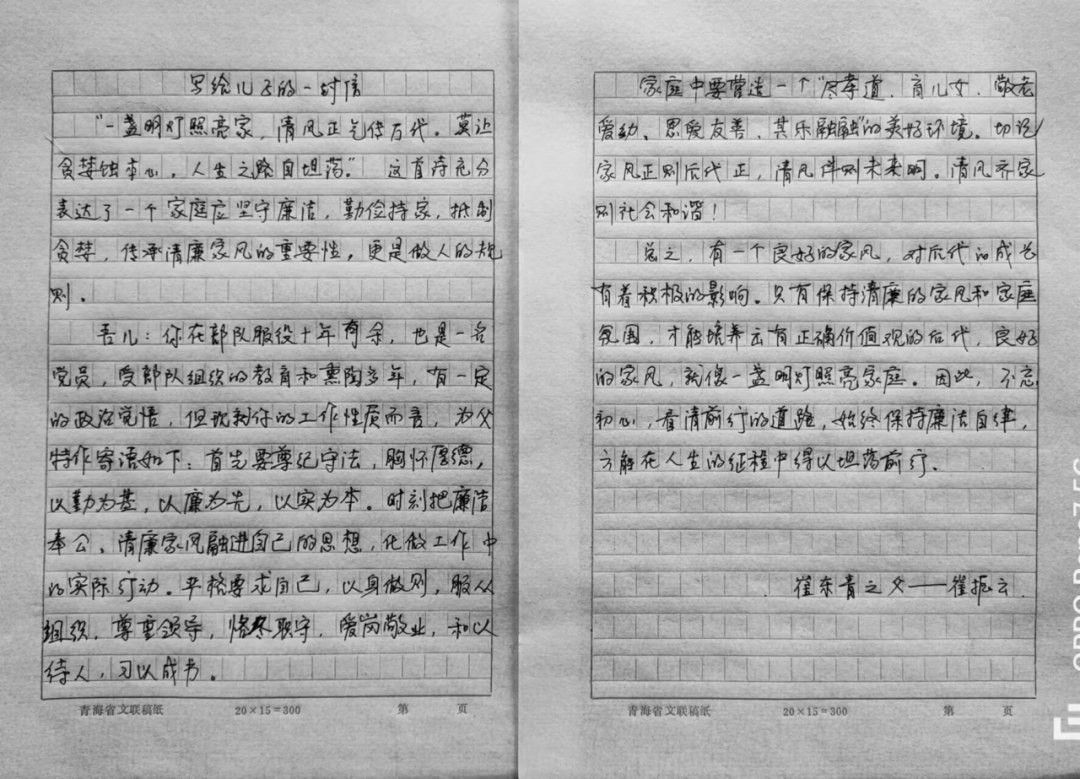 写给儿子的一封信
“一盏明灯照亮家，清风正气传万代。莫让
贪婪蚀本心，人生之路自坦荡。” 这首诗充分
表达了一个家庭应坚守廉洁，勤俭持家，抵制
贪婪，传承清廉家风的重要性，更是做人的规
则。
吾儿：你在部队服役十年有余，也是一名
党员，受部队组织的教育和熏陶多年，有一定
的政治觉悟，但就你的工作性质而言，为父
特作寄语如下：首先要尊纪守法，胸怀厚德，
以勤为基，以廉为先，以实为本。时刻把廉洁
奉公、清廉家风融进自己的思想，化做工作中
的实际行动。严格要求自己，以身做则，服从
组织，尊重领导，恪尽职守，爱岗敬业，和以
待人，习以成书。
青海省文联稿纸 20×15=300 第 页
家庭中要营造一个“尽孝道，育儿女，敬老
爱幼、恩爱友善，其乐融融”的美好环境。切记
家风正则后代正，清风伴则未来明。清风齐家
则社会和谐！
总之，有一个良好的家风，对后代的成长
有着积极的影响。只有保持清廉的家风和家庭
氛围，才能培养出有正确价值观的后代，良好
的家风，就像一盏明灯照亮家庭。因此，不忘
初心，看清前行的道路，始终保持廉洁自律，
方能在人生的征程中得以坦荡前行。
崔东青之父——崔振云
青海省文联稿纸 20×15=300 第 页